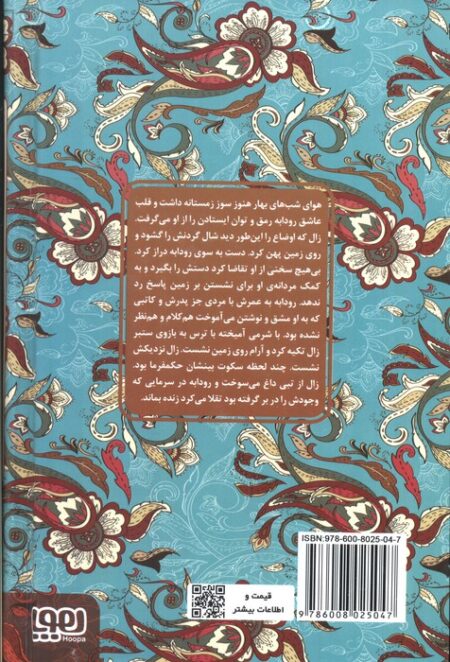 هوای شب‌های بهار هنوز سوز زمستانه داشت و قلب
عاشق رودابه رمق و توان ایستادن را از او می‌گرفت.
زال که اوضاع را این‌طور دید شال گردنش را گشود و
روی زمین پهن کرد. دست به سوی رودابه دراز کرد
بی‌هیچ سخنی از او تقاضا کرد دستش را بگیرد و به
کمک مردانه‌ی او برای نشستن بر زمین پاسخ رد
ندهد. رودابه به عمرش با مردی جز پدرش و کاتبی
که به او مشق و نوشتن می‌آموخت هم‌کلام و هم‌نظر
نشده بود. با شرمی آمیخته با ترس به بازوی ستبر
زال تکیه کرد و آرام روی زمین نشست. زال نزدیکش
نشست. چند لحظه سکوت بینشان حکمفرما بود.
زال از تبی داغ می‌سوخت و رودابه در سرمایی که
وجودش را در بر گرفته بود تقلا می‌کرد زنده بماند.
ISBN:978-600-8025-04-7
9 786008 025047
قیمت و
اطلاعات بیشتر
هوپا
Hoopa